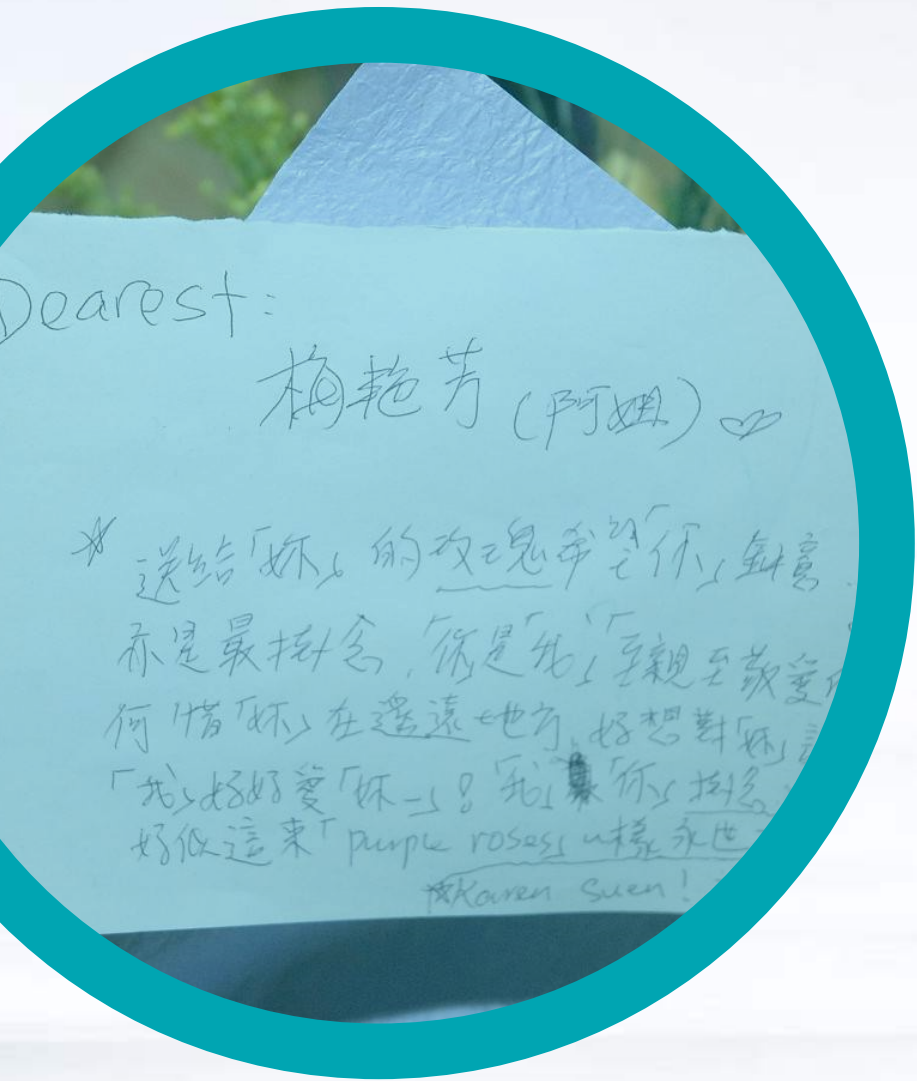 Dearest:
梅艷芳 (阿姐) ♡
* 送給「妳」的玫瑰希望「你」鍾意
亦是最掛念,「你」是「我」「至親至敬愛
何惜「妳」在遙遠地方,好想對「妳」
「我」好好愛「妳_」!「我」「你」掛念
好似這束「purple roses」一樣永世
*Karen Suen!